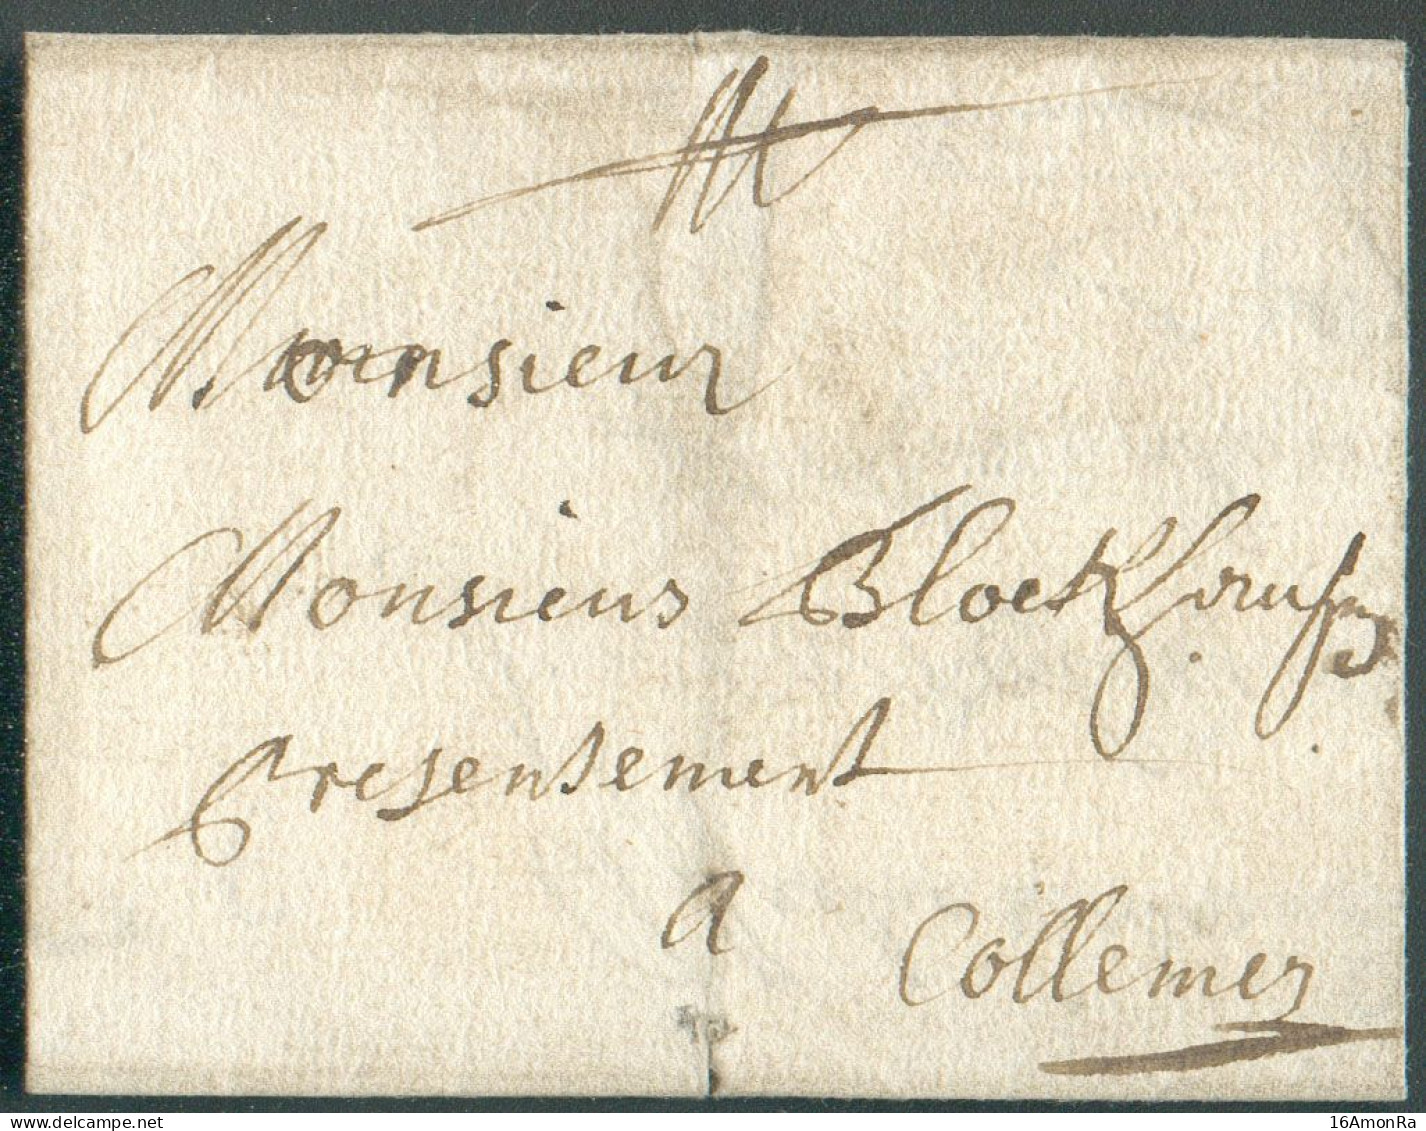 Monsieur
Monsieur Bloekhausen
presentement
a Collemey
www.delcampe.net
16AmonRa